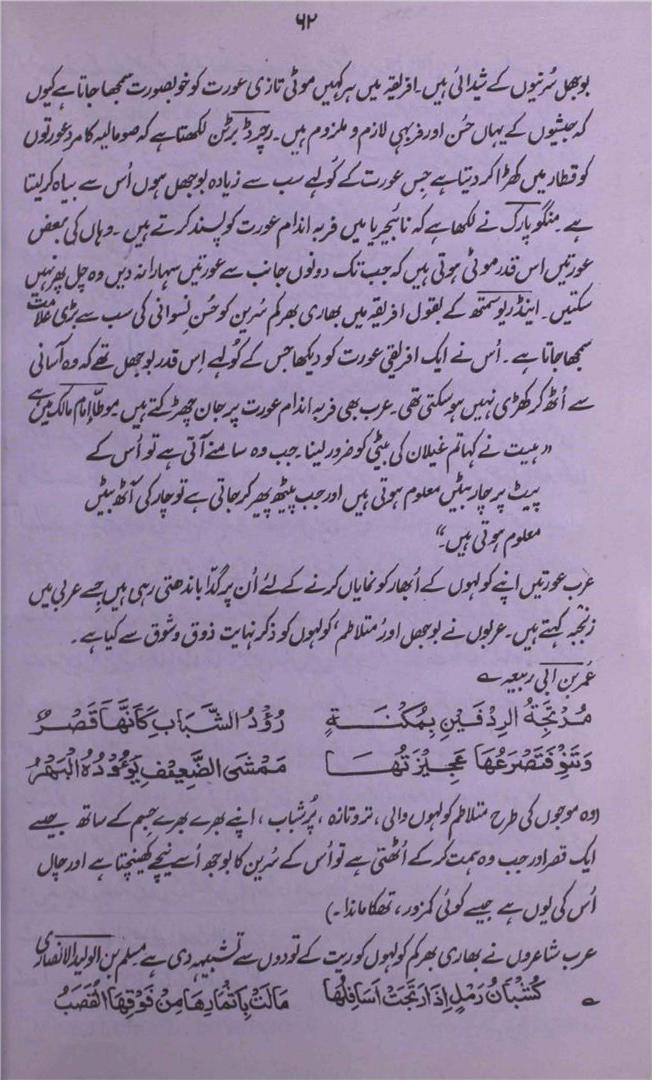 ۶۲
بوجھل سُرنیوں کے شیدائی ہیں۔ افریقہ میں ہر کہیں موٹی تازی عورت کو خوبصورت سمجھا جاتا ہے کیوں
کہ حبشیوں کے یہاں حُسن اور فربہی لازم و ملزوم ہیں۔ رچرڈ برٹن لکھتا ہے کہ صومالیہ کا مرد عورتوں
کو قطار میں کھڑا کر دیتا ہے جس عورت کے کُولہے سب سے زیادہ بوجھل ہوں اُس سے بیاہ کر لیتا
ہے۔ منگو پارک نے لکھا ہے کہ نائیجیریا میں فربہ اندام عورت کو پسند کرتے ہیں۔ وہاں کی بعض
عورتیں اس قدر موٹی ہوتی ہیں کہ جب تک دونوں جانب سے عورتیں سہارا نہ دیں وہ چل پھر نہیں
سکتیں۔ اینڈریو سمتھ کے بقول افریقہ میں بھاری بھرکم سُرین کو حُسنِ نسوانی کی سب سے بڑی علامت
سمجھا جاتا ہے۔ اُس نے ایک افریقی عورت کو دیکھا جس کے کُولہے اِس قدر بوجھل تھے کہ وہ آسانی
سے اُٹھ کر کھڑی نہیں ہو سکتی تھی۔ عرب بھی فربہ اندام عورت پر جان چھڑکتے ہیں۔ موطّا اِمام مالک میں ہے
"ہیت نے کہا تم غیلان کی بیٹی کو ضرور لینا۔ جب وہ سامنے آتی ہے تو اُس کے
پیٹ پر چار بٹیں معلوم ہوتی ہیں اور جب پیٹھ پھیر کر جاتی ہے تو چار کی آٹھ بٹیں
معلوم ہوتی ہیں۔"
عرب عورتیں اپنے کولہوں کے اُبھار کو نمایاں کرنے کے لئے اُن پر گدّا باندھتی رہی ہیں جسے عربی میں
زنجبہ کہتے ہیں۔ عربوں نے بوجھل اور 'متلاطم' کولہوں کو ذکر نہایت ذوق و شوق سے کیا ہے۔
عُمر بن ابی ربیعہ ؎
مُرْتَجَّةُ الرِدْفَيْنِ بِمُكْنَةٍ رُؤْدُ الشَّبَابِ كَأَنَّهَا قَصْرٌ
وَتَنُوْ فَتَصْرَعُهَا عَجِيْزَتُهَا مَمْشَى الضَّعِيْفِ يَؤُوْدُهُ الْبَهْرُ
(وہ موجوں کی طرح متلاطم کولہوں والی، تروتازہ، پُرشباب، اپنے بھرے بھرے جسم کے ساتھ جیسے
ایک قصر اور جب وہ ہمت کر کے اُٹھتی ہے تو اُس کے سُرین کا بوجھ اُسے نیچے کھینچتا ہے اور چال
اُس کی یوں ہے جیسے کوئی کمزور، تھکا ماندا۔)
عرب شاعروں نے بھاری بھرکم کولہوں کو ریت کے تودوں سے تشبیہہ دی ہے مسلم بن الولید الانصاری
؎ كُثْبَانُ رَمْلٍ إِذَا رْتَجَتْ أَسَافِلُهَا مَالَتْ بِأَثْمَارِهَا مِنْ فَوْقِهَا الْقُضُبُ